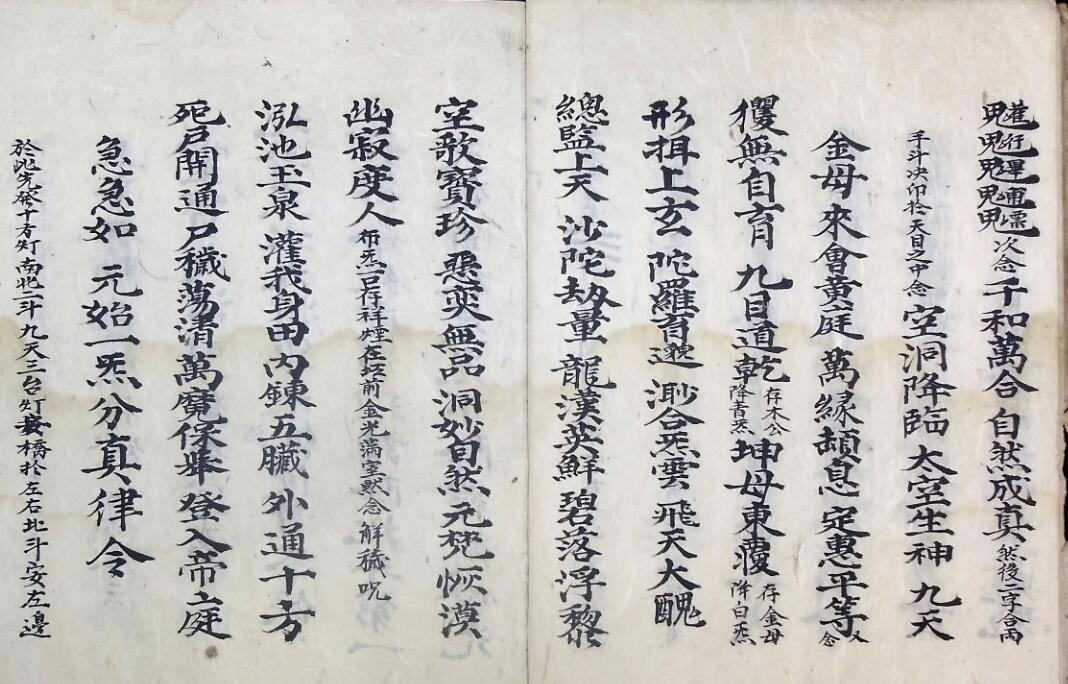 魓𩲃魓魒𩳐 次念千和萬合 自然成真 然後二字合兩
手斗决印於天目之中念 空洞降臨 太空生神 九天
金母來會黄庭 萬縁頡息 定惠平等 又念
玃無自育 九日道乾 存木公降青炁 坤母東覆 存金母降白炁
形揖上玄 陀羅育邈 渺合炁雲 飛天大醜
總監上天 沙陀劫量 龍漢英鮮 碧落浮黎
空歌寳珍 惡奕無品 洞妙自然 元梵恢漠
幽寂度人 布炁一口存祥煙在壇前金光满室黙念 解穢咒
泓池玉泉 灌我身田 内鍊五臟 外通十方
死戸開通 尸穢荡清 萬魔保舉 登入帝庭
急急如 元始一炁分真律令
於此先發十方灯南北二斗九天三台灯 橋於左右北斗安左邉